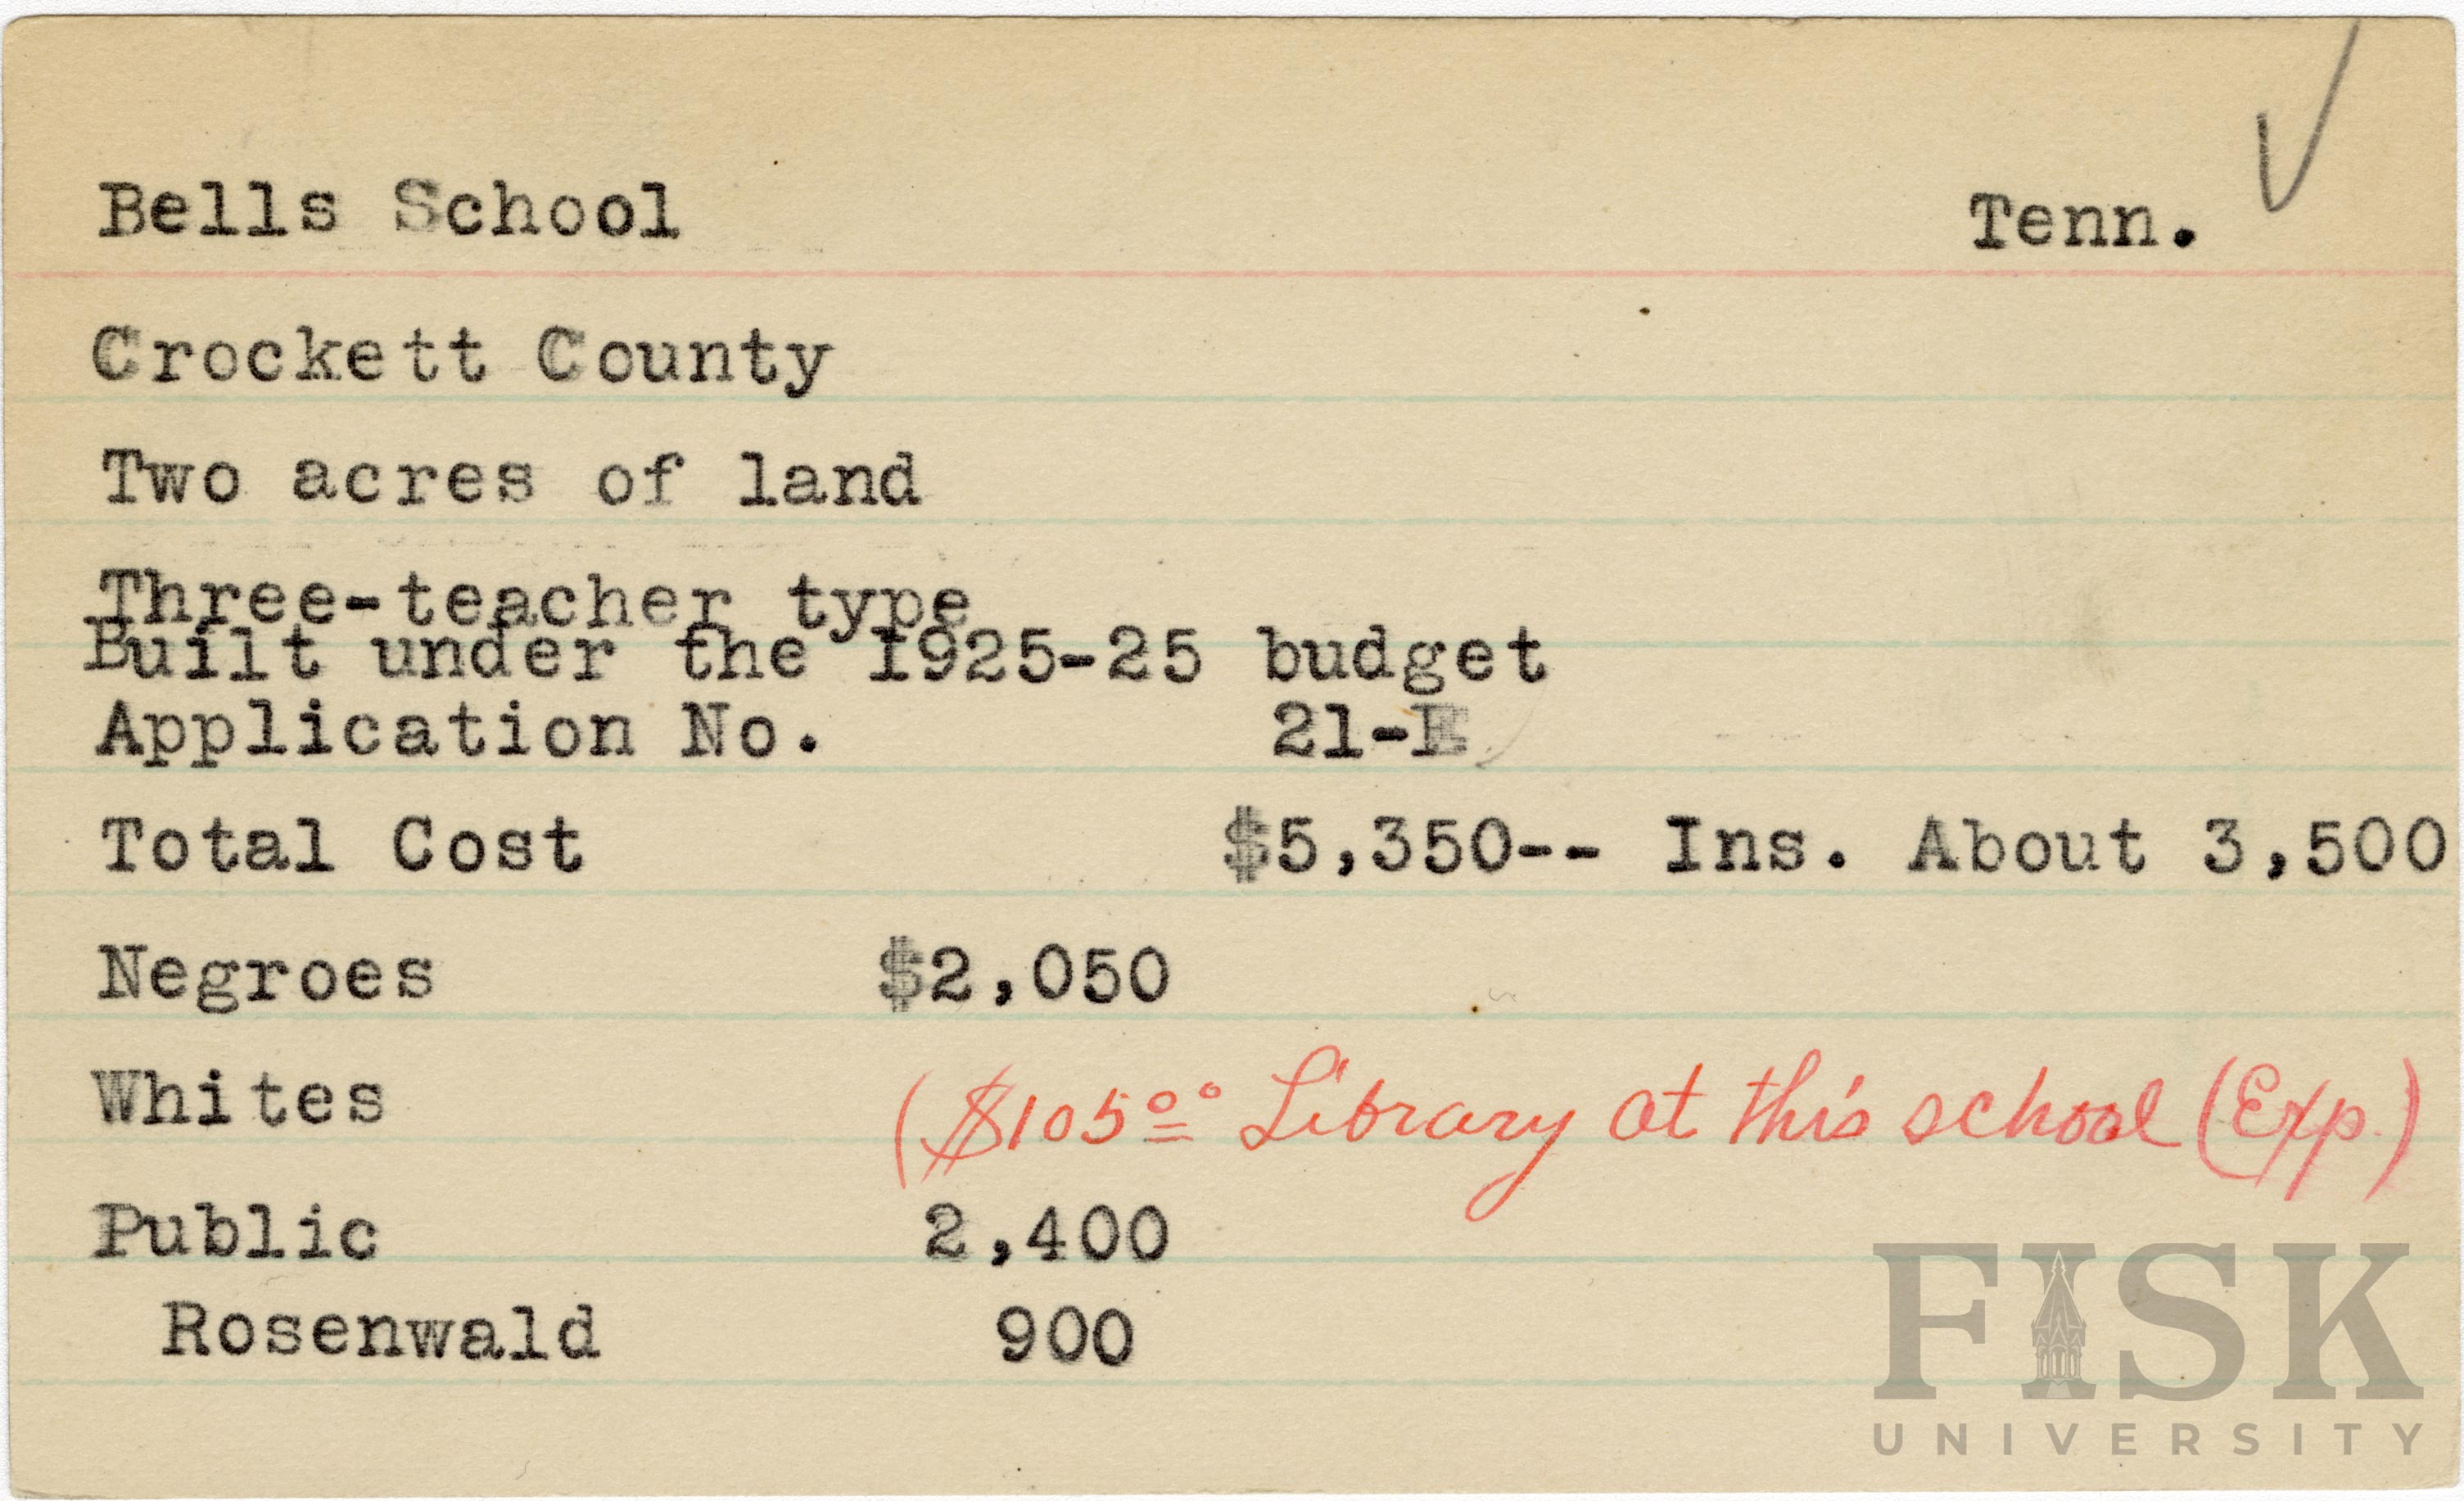 Bells School Tenn.
Crockett County
Two acres of land
Three-teacher type
Built under the 1925-25 budget
Application No. 21-E
Total Cost $5,350-- Ins. About 3,500
Negroes $2,050
Whites ($105.00 Library at this school (Exp.)
Public 2,400
Rosenwald 900
FISK
UNIVERSITY